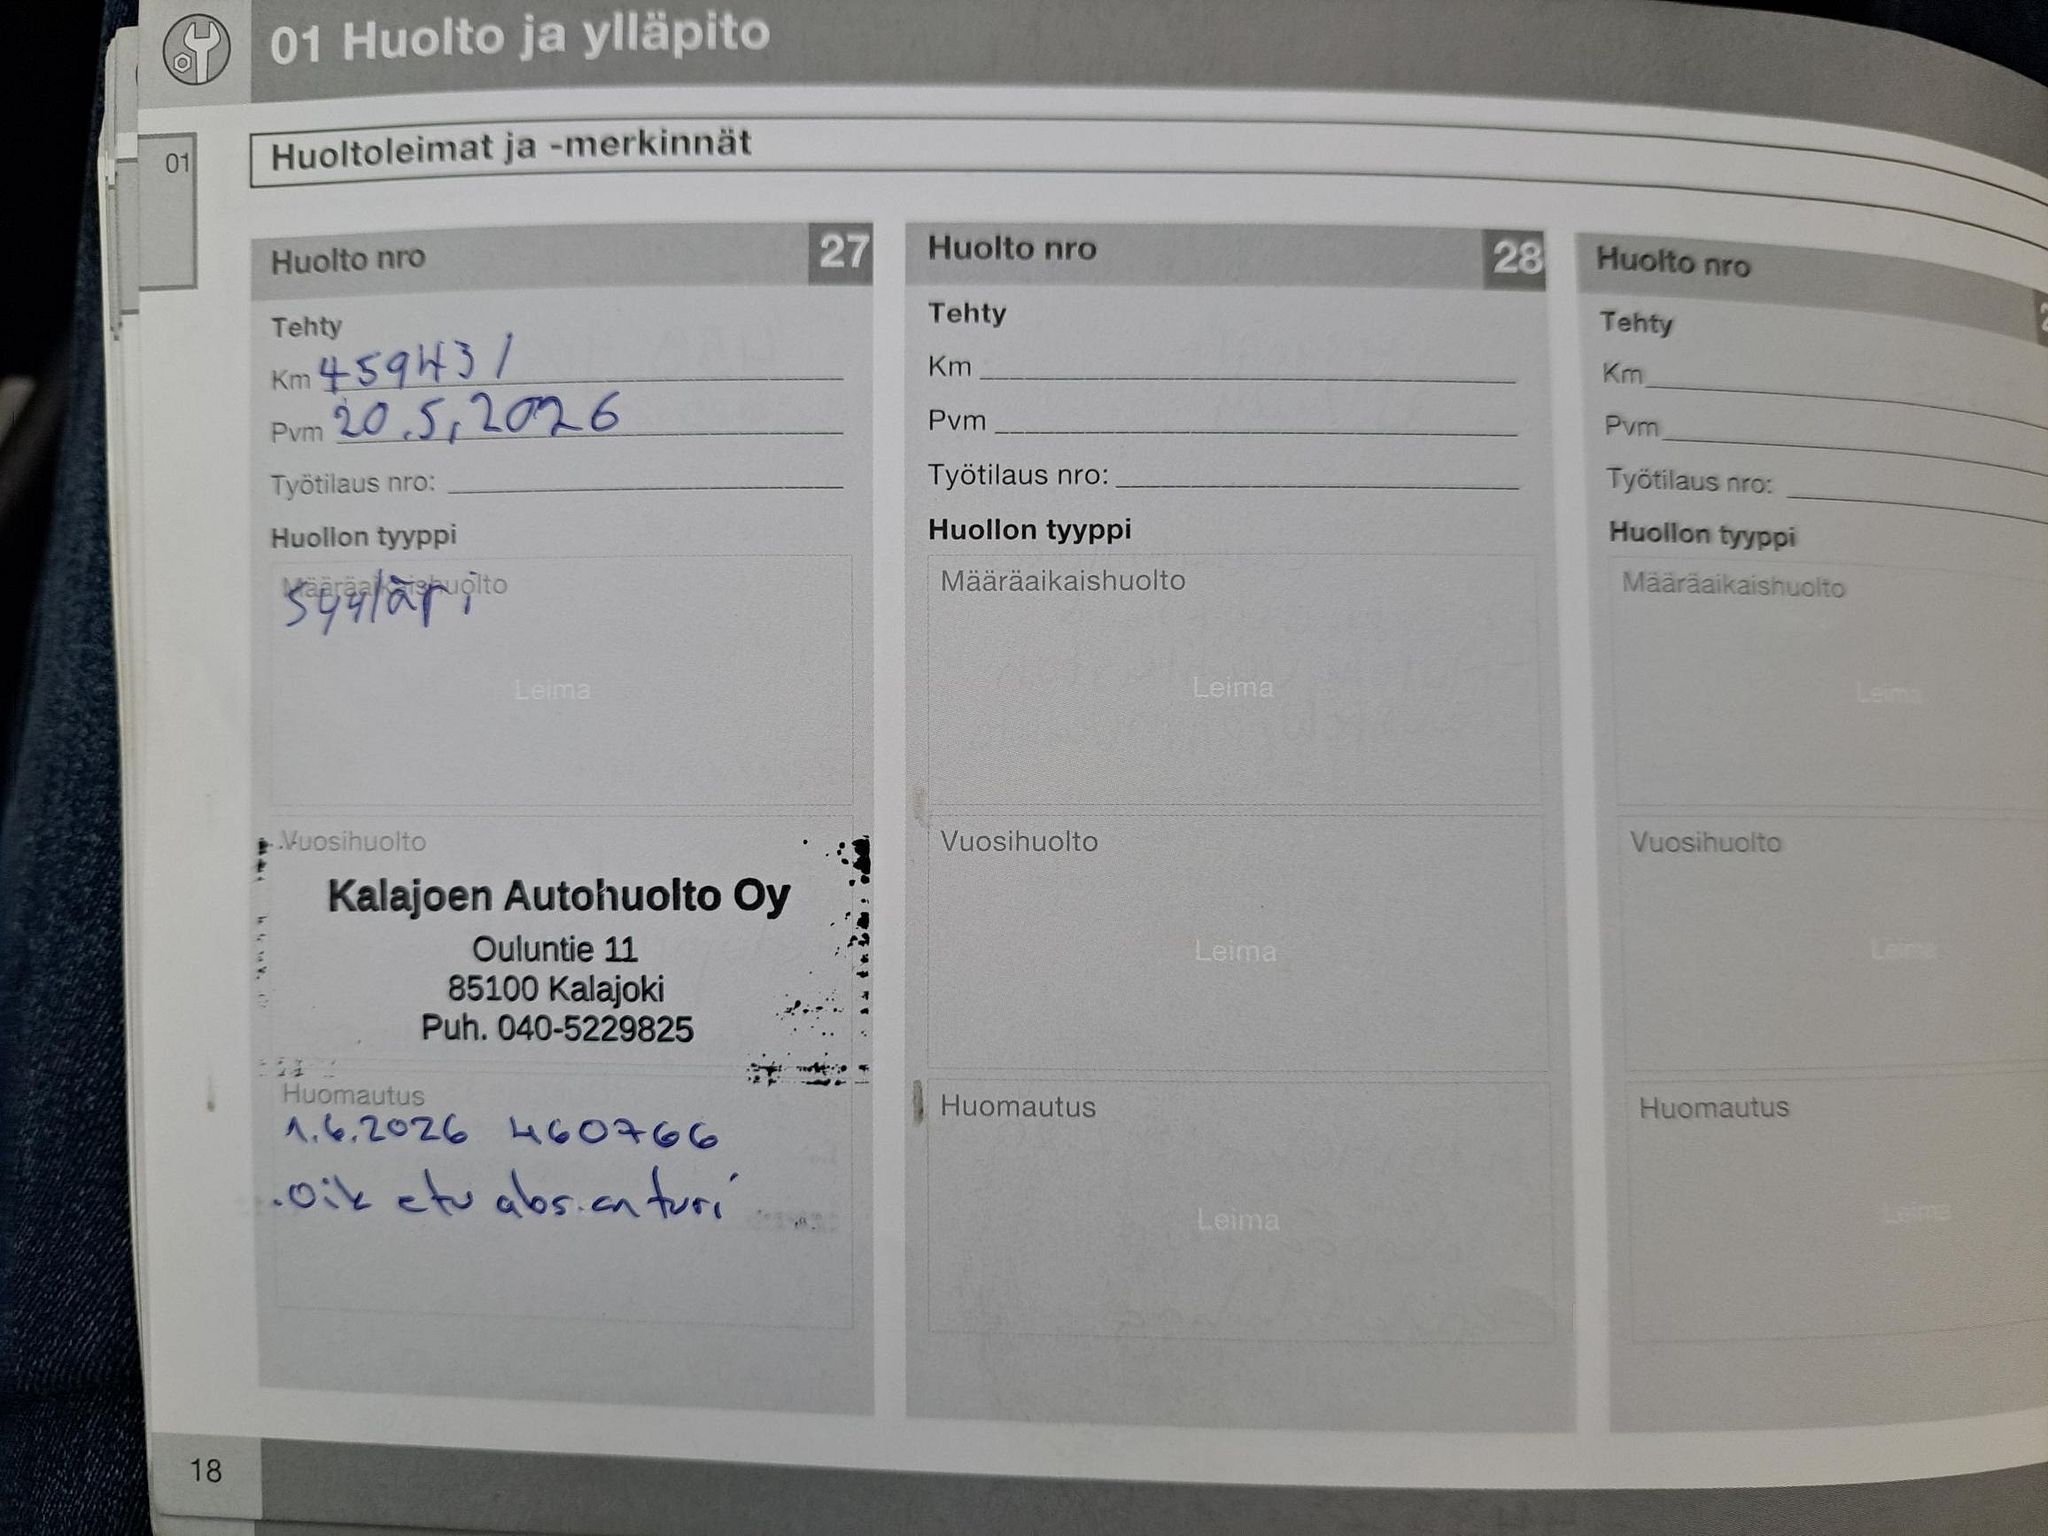 01 Huolto ja ylläpito
01
Huoltoleimat ja -merkinnät
Huolto nro 27
Tehty
Km 459431
Pvm 20.5.2026
Työtilaus nro:
Huollon tyyppi
Määräaikaishuolto
Leima
Vuosihuolto
Kalajoen Autohuolto Oy
Ouluntie 11
85100 Kalajoki
Puh. 040-5229825
Huomautus
1.6.2026 460766
.Oik etu abs.anturi
Huolto nro 28
Tehty
Km
Pvm
Työtilaus nro:
Huollon tyyppi
Määräaikaishuolto
Leima
Vuosihuolto
Leima
Huomautus
Leima
Huolto nro
Tehty
Km
Pvm
Työtilaus nro:
Huollon tyyppi
Määräaikaishuolto
Leima
Vuosihuolto
Leima
Huomautus
Leima
18